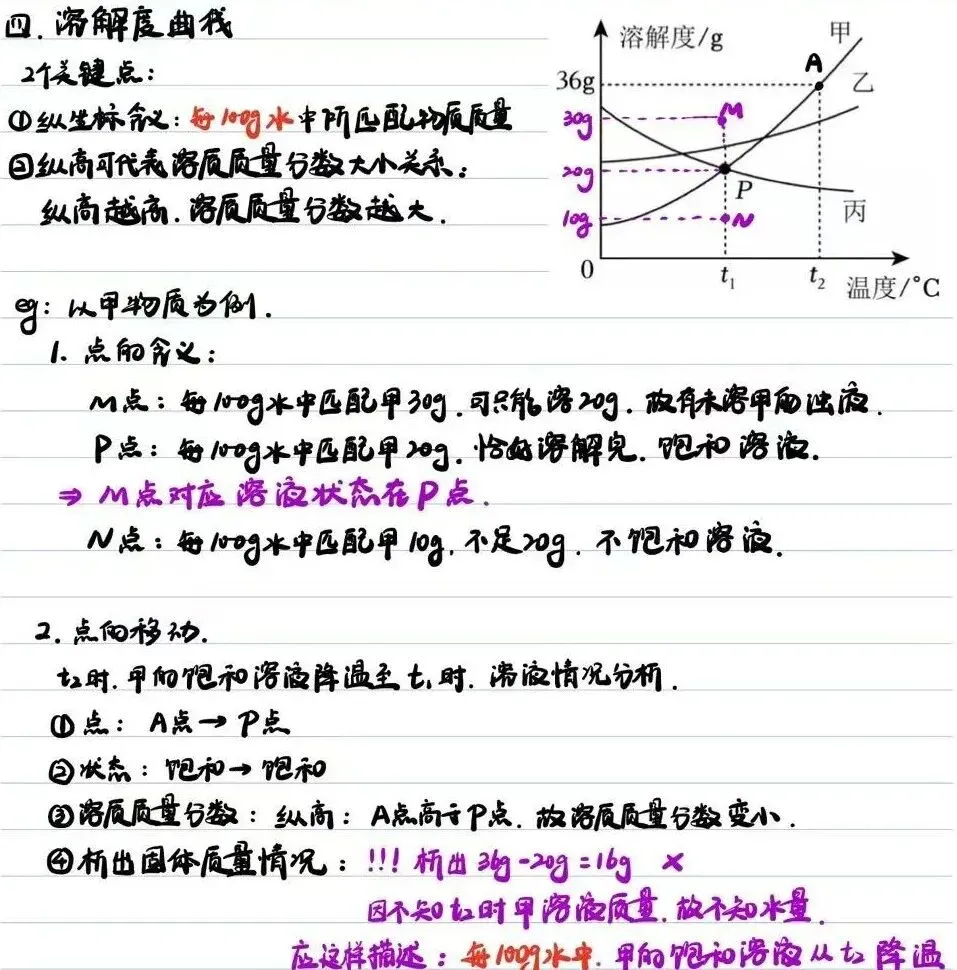 四. 溶解度曲线
2个关键点:
①纵坐标含义: 每100g水中所匹配物质质量
②纵高可代表溶质质量分数大小关系:
纵高越高. 溶质质量分数越大.
溶解度/g
甲
A
36g
乙
30g
M
20g
P
10g
N
丙
0
t₁
t₂
温度/°C
eg: 以甲物质为例.
1. 点的含义:
M点: 每100g水中匹配甲30g. 可只能溶20g. 故有未溶甲的浊液.
P点: 每100g水中匹配甲20g. 恰好溶解完. 饱和溶液.
⇒ M点对应溶液状态在P点.
N点: 每100g水中匹配甲10g, 不足20g. 不饱和溶液.
2. 点的移动.
t₂时. 甲的饱和溶液降温至t₁时. 溶液情况分析.
①点: A点→P点
②状态: 饱和→饱和
③溶质质量分数: 纵高: A点高于P点. 故溶质质量分数变小.
④析出固体质量情况: !!! 析出36g-20g=16g ×
因不知t₂时甲溶液质量. 故不知水量.
应这样描述: 每100g水中. 甲的饱和溶液从t₂降温